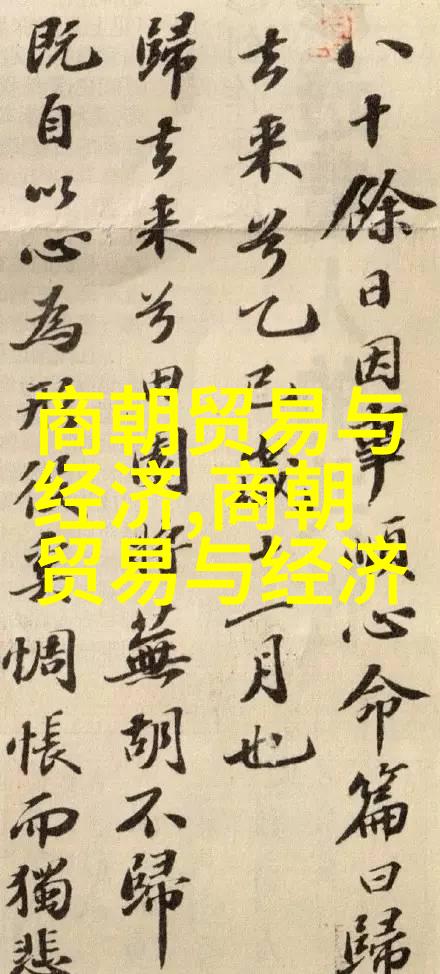 八十餘日因事順心命篇曰歸
去来兮乙巳歲十一月也
歸去来兮田園將蕪胡不歸
既自以心為形役奚惆悵而獨悲
商朝贸易与
经济,商朝
贸易与经济